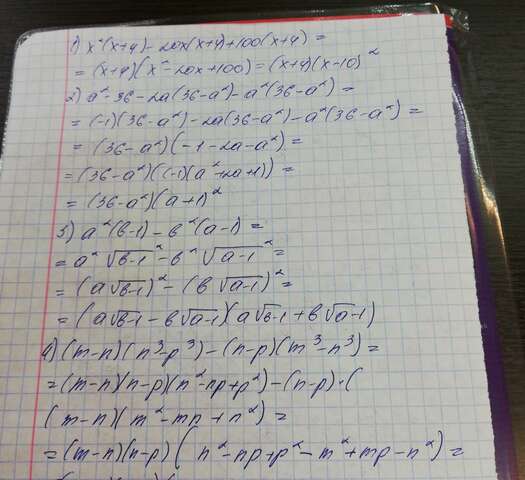 1) x²(x+y)-20x(x+y)+100(x+y)=
=(x+y)(x²-20x+100)=(x+y)(x-10)²
2) a²-36-2a(36-a²)-a²(36-a²)=
=(-1)(36-a²)-2a(36-a²)-a²(36-a²)=
=(36-a²)(-1-2a-a²)=
=(36-a²)((-1)(a²+2a+1))=
=(36-a²)(a+1)²
3) a²(b-1)-b²(a-1)=
=a²√(b-1)²-b²√(a-1)²=
=(a√(b-1))²-(b√(a-1))²=
=(a√(b-1)-b√(a-1))(a√(b-1)+b√(a-1))
4) (m-n)(n³-p³)-(n-p)(m³-n³)=
=(m-n)(n-p)(n²-np+p²)-(n-p)·(
(m-n)(m²-mp+n²)=
=(m-n)(n-p)(n²-np+p²-m²+mp-n²)=